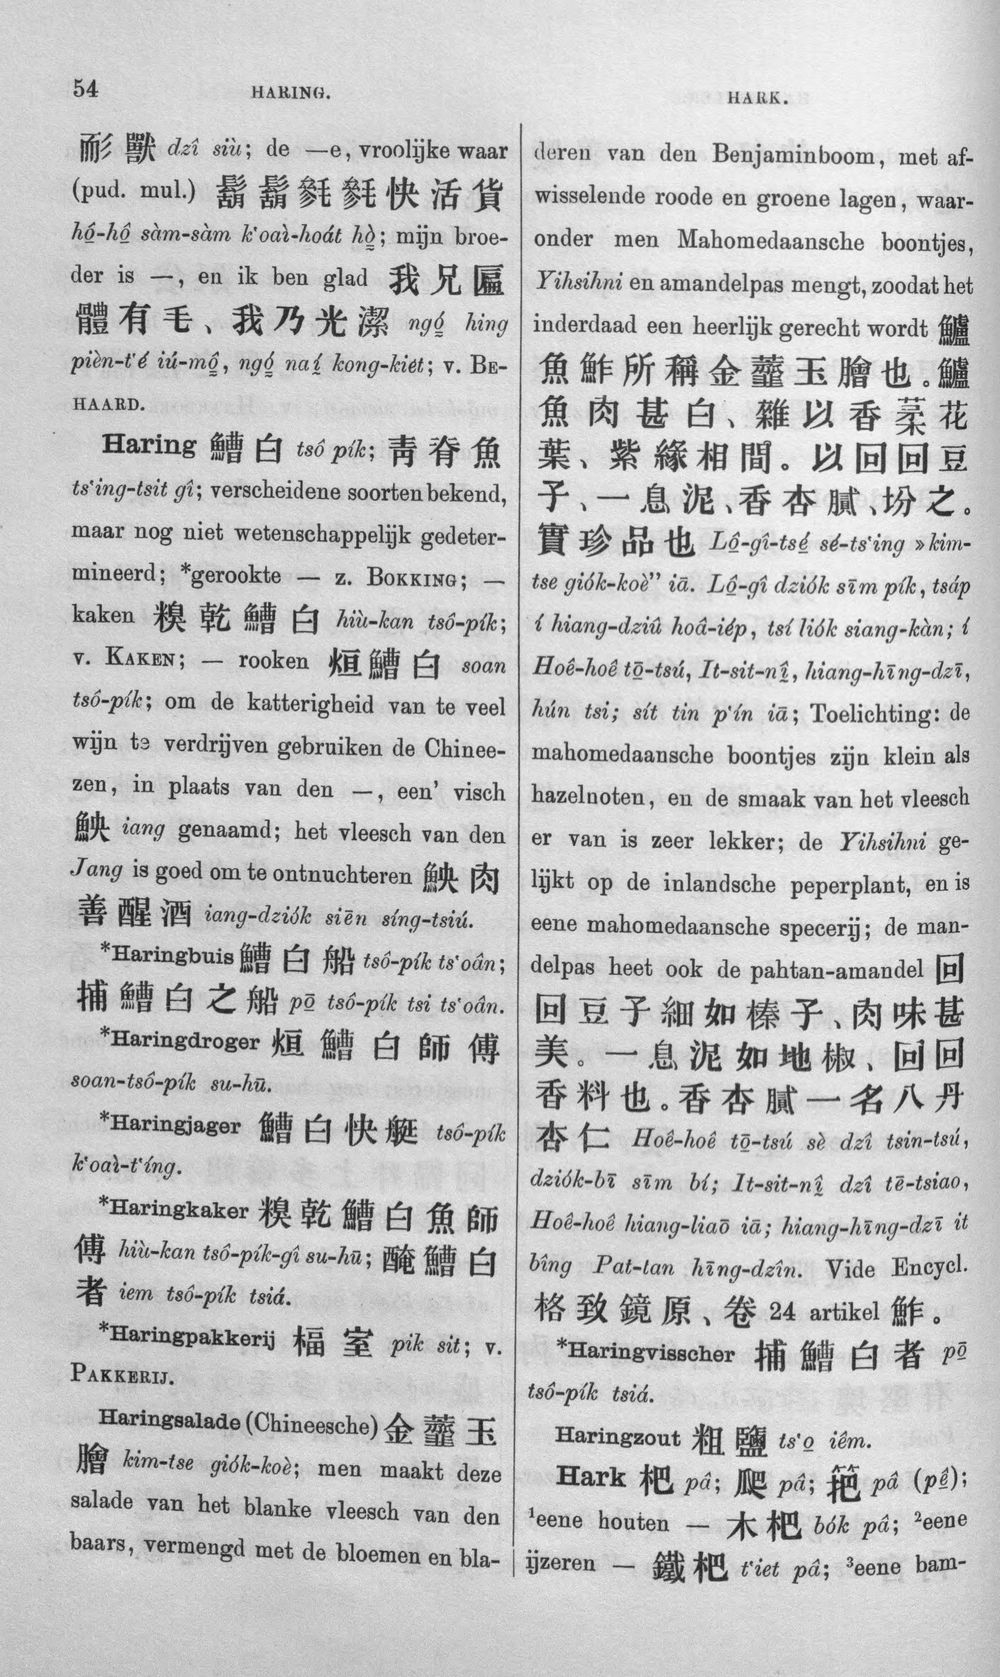 54
HARING.
HARK.
耏獸 dzî siù; de —e, vroolijke waar
(pud. mul.) 鬍鬍毿毿快活貨
hô̤-hô̤ sàm-sàm k'oaì-hoát hò̤; mijn broe-
der is —, en ik ben glad 我兄匾
體有毛、我乃光潔 ngó̤ hing
pièn-t'é iú-mô̤, ngó̤ naí̤ kong-kiét; v. BE-
HAARD.
Haring 鰽白 tsô pík; 靑脊魚
ts'ing-tsit gî; verscheidene soorten bekend,
maar nog niet wetenschappelijk gedeter-
mineerd; *gerookte — z. BOKKING; —
kaken 糗乾鰽白 hiù-kan tsô-pík;
v. KAKEN; — rooken 烜鰽白 soan
tsô-pík; om de katterigheid van te veel
wijn te verdrijven gebruiken de Chinee-
zen, in plaats van den —, een' visch
鉠 iang genaamd; het vleesch van den
Jang is goed om te ontnuchteren 鉠肉
善醒酒 iang-dziók siēn síng-tsiú.
*Haringbuis 鰽白船 tsô-pík ts'oân;
捕鰽白之船 pō̤ tsô-pík tsi ts'oân.
*Haringdroger 烜鰽白師傅
soan-tsô-pík su-hū.
*Haringjager 鰽白快艇 tsô-pík
k'oaì-t'íng.
*Haringkaker 糗乾鰽白魚師
傅 hiù-kan tsô-pík-gî su-hū; 醃鰽白
者 iem tsô-pík tsiá.
*Haringpakkerij 楅室 pik sit; v.
PAKKERIJ.
Haringsalade (Chineesche) 金虀玉
膾 kim-tse giók-koè; men maakt deze
salade van het blanke vleesch van den
baars, vermengd met de bloemen en bla-
deren van den Benjaminboom, met af-
wisselende roode en groene lagen, waar-
onder men Mahomedaansche boontjes,
Yihsihni en amandelpas mengt, zoodat het
inderdaad een heerlijk gerecht wordt 鱸
魚鮓所稱金虀玉膾也。鱸
魚肉甚白、雜以香葇花
葉、紫緣相間。以回回豆
子、一息泥、香杏膩、坋之。
實珍品也 Lô̤-gî-tsé̤ sé-ts'ing »kim-
tse giók-koè" iā. Lô̤-gî dziók sīm pík, tsáp
í hiang-dziû hoâ-iép, tsí liók siang-kàn; í
Hoê-hoê tō̤-tsú, It-sit-nî̤, hiang-hīng-dzī,
hún tsi; sít tin p'ín iā; Toelichting: de
mahomedaansche boontjes zijn klein als
hazelnoten, en de smaak van het vleesch
er van is zeer lekker; de Yihsihni ge-
lijkt op de inlandsche peperplant, en is
eene mahomedaansche specerij; de man-
delpas heet ook de pahtan-amandel 回
回豆子細如榛子、肉味甚
美。一息泥如地椒、回回
香料也。香杏膩一名八丹
杏仁 Hoê-hoê tō̤-tsú sè dzî tsin-tsú,
dziók-bī sīm bí; It-sit-nî̤ dzî tē-tsiao,
Hoê-hoê hiang-liaō iā; hiang-hīng-dzī it
bîng Pat-tan hīng-dzîn. Vide Encycl.
格致鏡原、卷 24 artikel 鮓。
*Haringvisscher 捕鰽白者 pō̤
tsô-pík tsiá.
Haringzout 粗鹽 ts'o̤ iêm.
Hark 杷 pâ; 爬 pâ; 筢 pâ (pê̤);
¹eene houten — 木杷 bók pâ; ²eene
ijzeren — 鐵杷 t'iet pâ; ³eene bam-